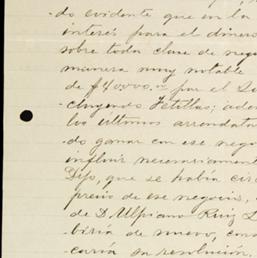 do evidente que en la
interés para el dinero
sobre toda clase de nego
manera muy notable
de $40000.00 por el Sr
cluyendo Fetillas; ade
los últimos arrendata
do ganar con ese nego
influir necesariamente
Dijo, que se había cir
precio de ese negocio,
de D. Ulpiano Ruiz L
biría de nuevo, con
caría su resolución.